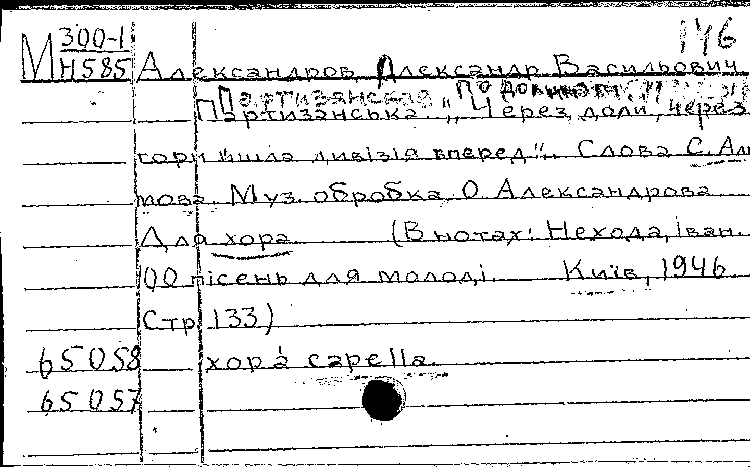 146
М 300-1
Н585 Александров, Александр Васильович
Партизанская По долинам
Партизанська. „Через доли, через
гори йшла дивізія вперед". Слова С. Али
мова. Муз. обробка О Александрова
Для хора. (В нотах: Нехода, Іван.
100 пісень для молоді. Київ, 1946
Стр 133)
65058 хор а capella.
65057